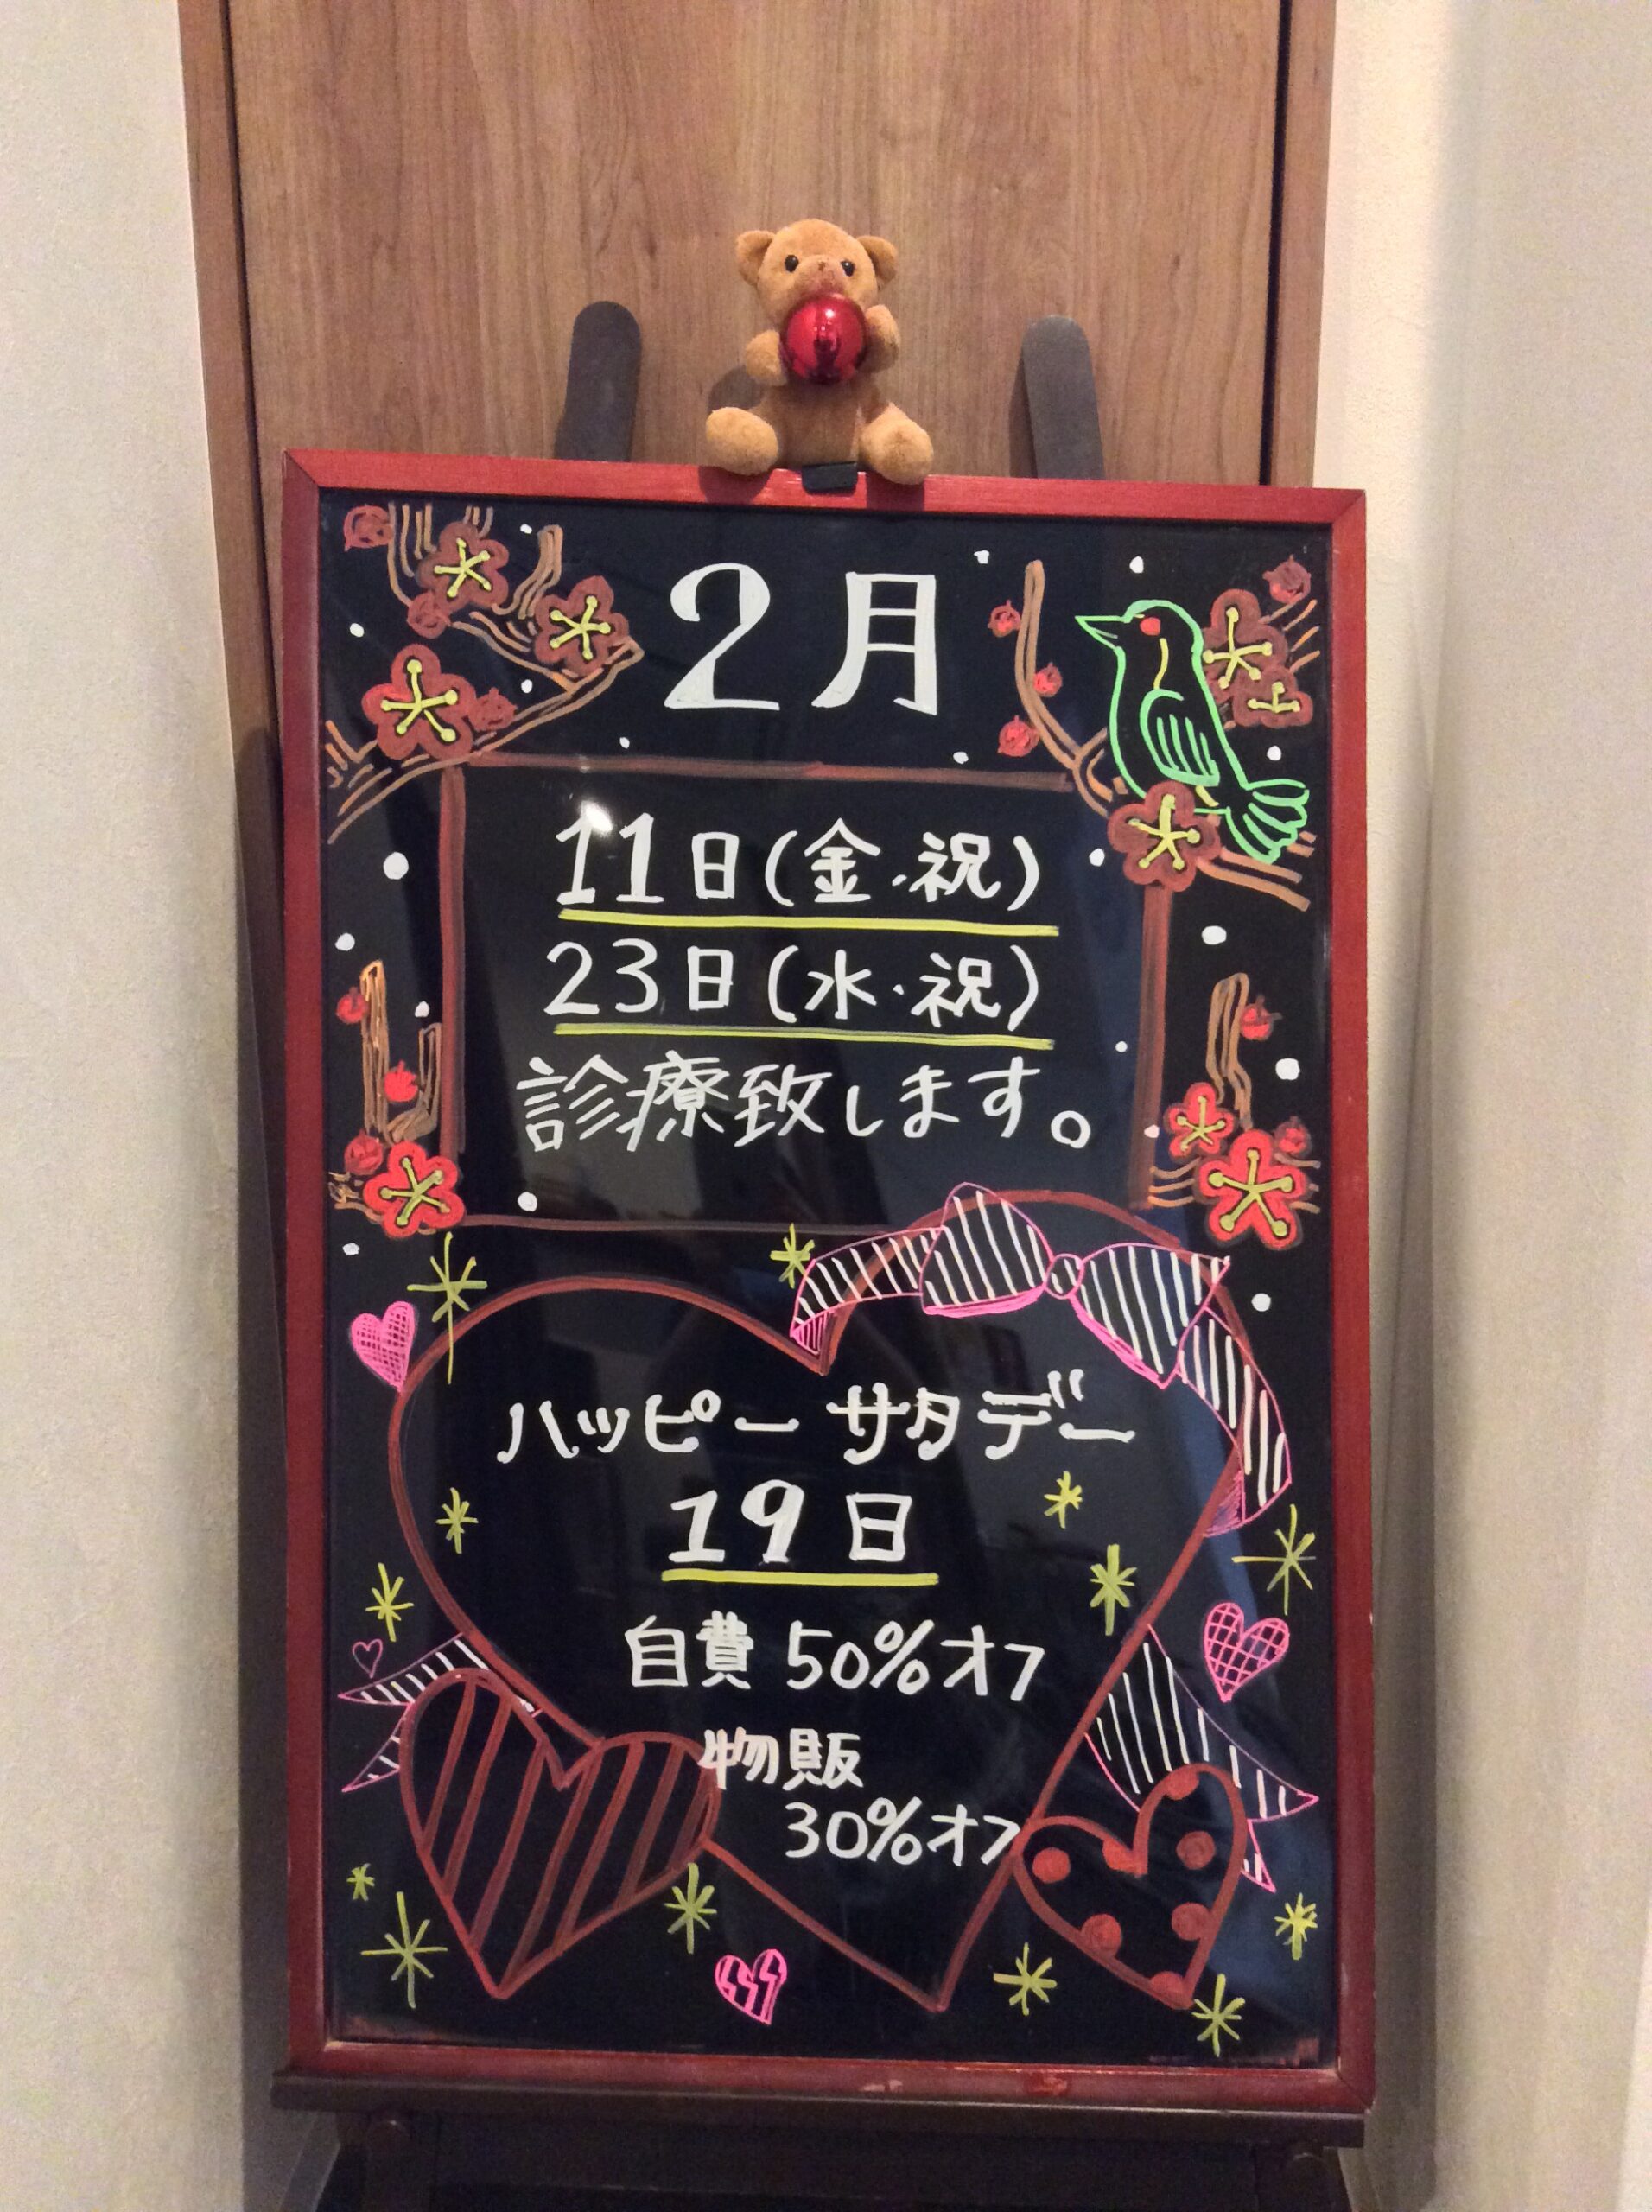 2月
11日(金・祝)
23日(水・祝)
診療致します。
ハッピーサタデー
19日
自費 50%オフ
物販
30%オフ